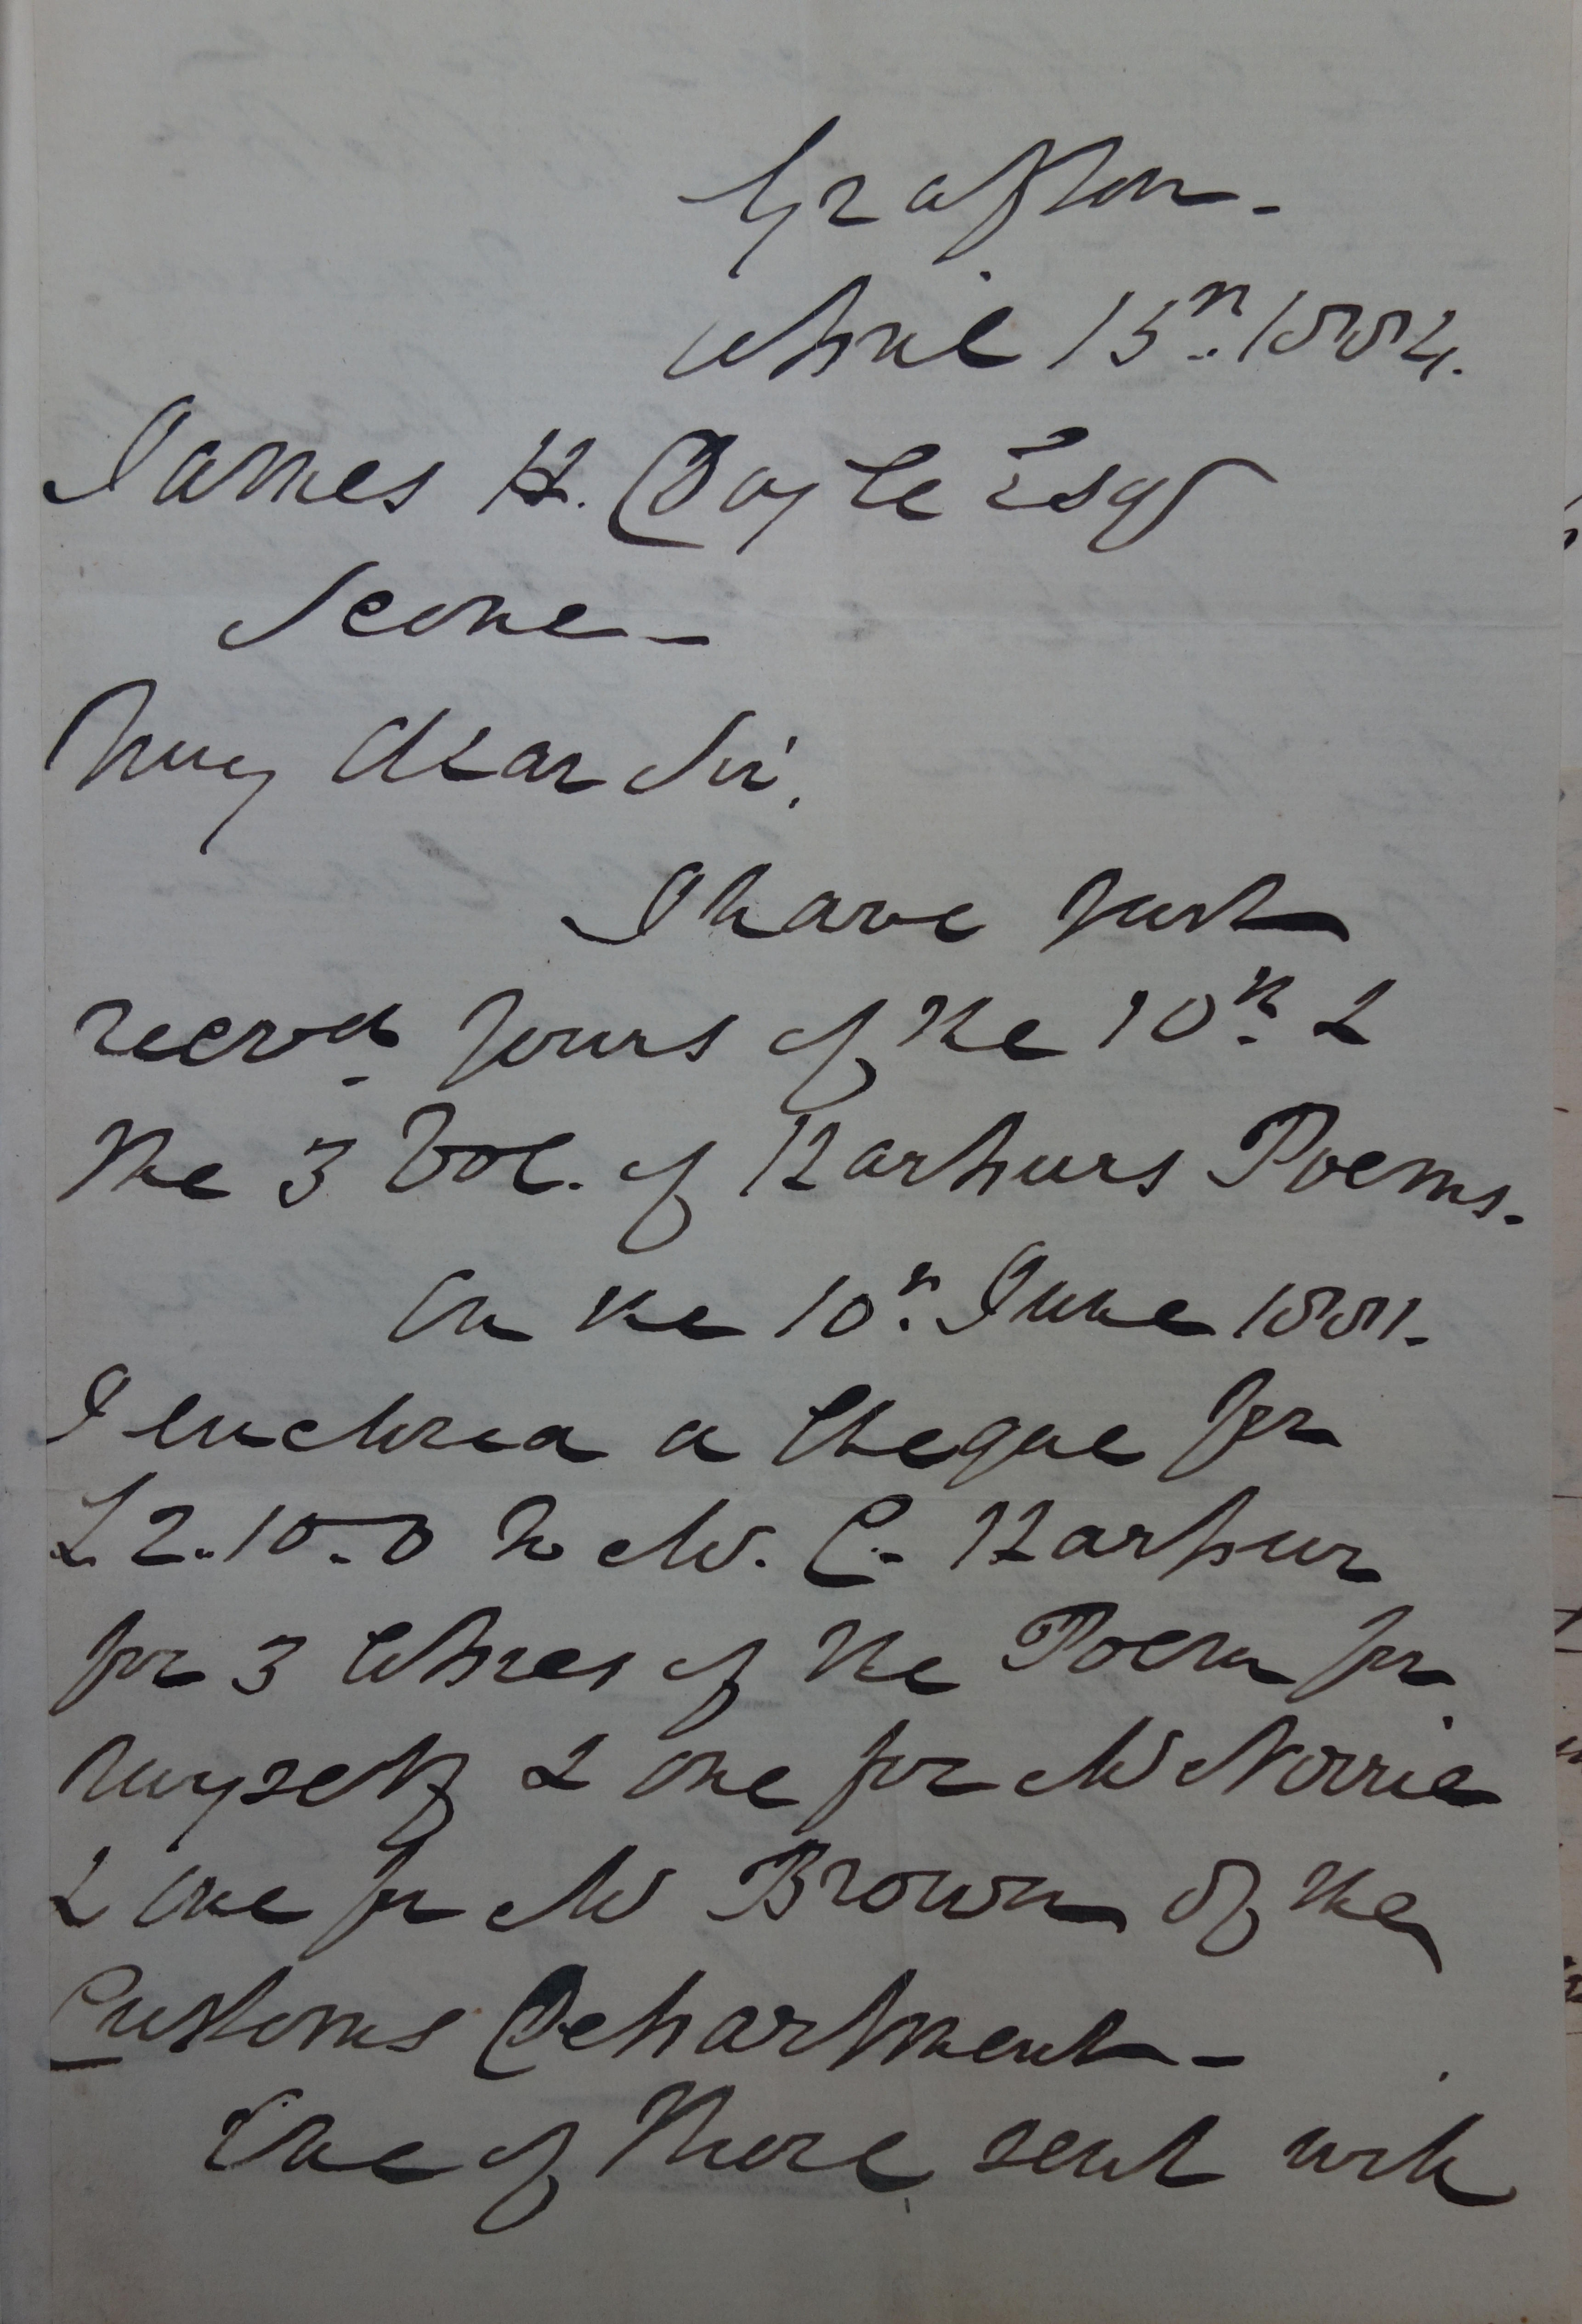 Grafton.
April 15th. 1884.
James H. Doyle Esqr
Scone—
My dear Sir,
I have just
recevd yours of the 10th. &
the 3 Vol. of Harpurs Poems.
On the 10th. June 1881.
I enclosed a cheque for
£2.10.0 to Mr. C. Harpur
for 3 copies of the Poem for
myself & one for Mr Norrie
& one for Mr Brown of the
Customs Department—
One of those sent will